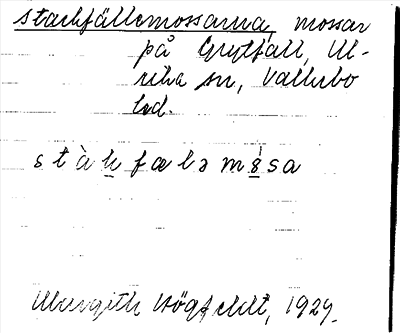 Starkfällemossarna, mossar
på Grytfall, Ul-
rika sn, Vallerbo
hd.
s t à k f æ l ə m s a
Margith Högfeldt, 1929.